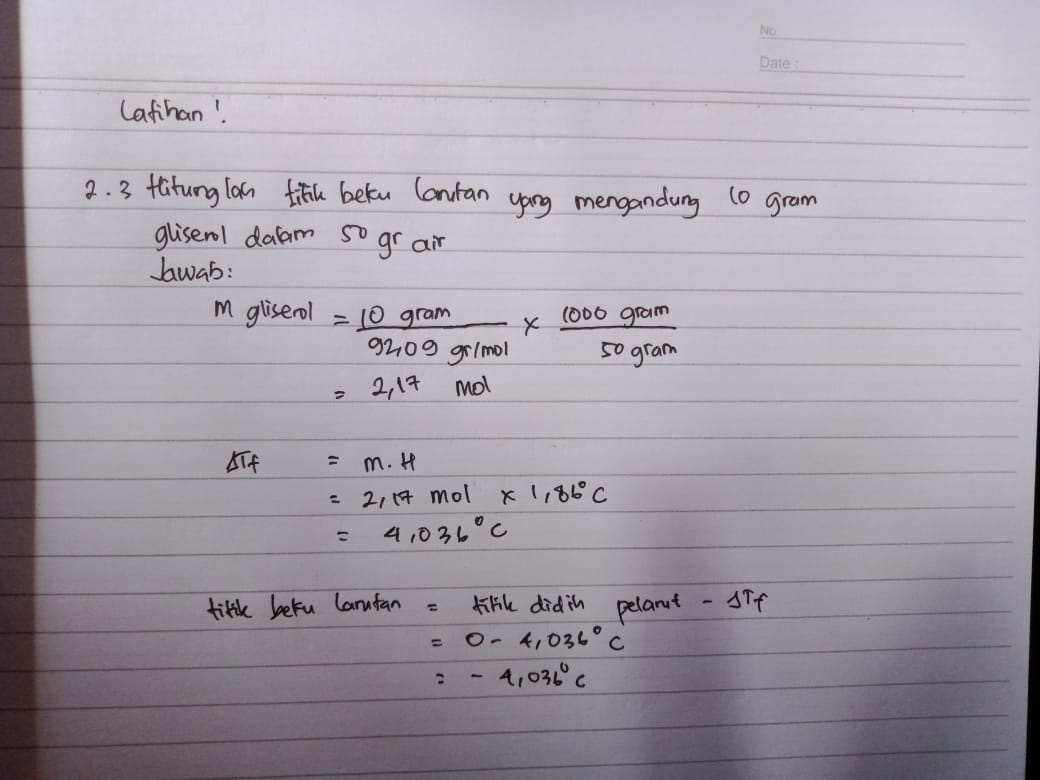 No
Date :
Latihan !
2.3 Hitunglah titik beku larutan yang mengandung 10 gram
gliserol dalam 50 gr air
Jawab:
M gliserol = 10 gram / 92,09 gr/mol x 1000 gram / 50 gram
= 2,17 mol
ΔTf = m . H
= 2,17 mol x 1,86°C
= 4,036°C
titik beku larutan = titik didih pelarut - ΔTf
= 0 - 4,036°C
= - 4,036°C